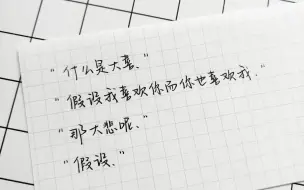 "什么是大喜."
"假设我喜欢你而你也喜欢我."
"那大悲呢."
"假设."